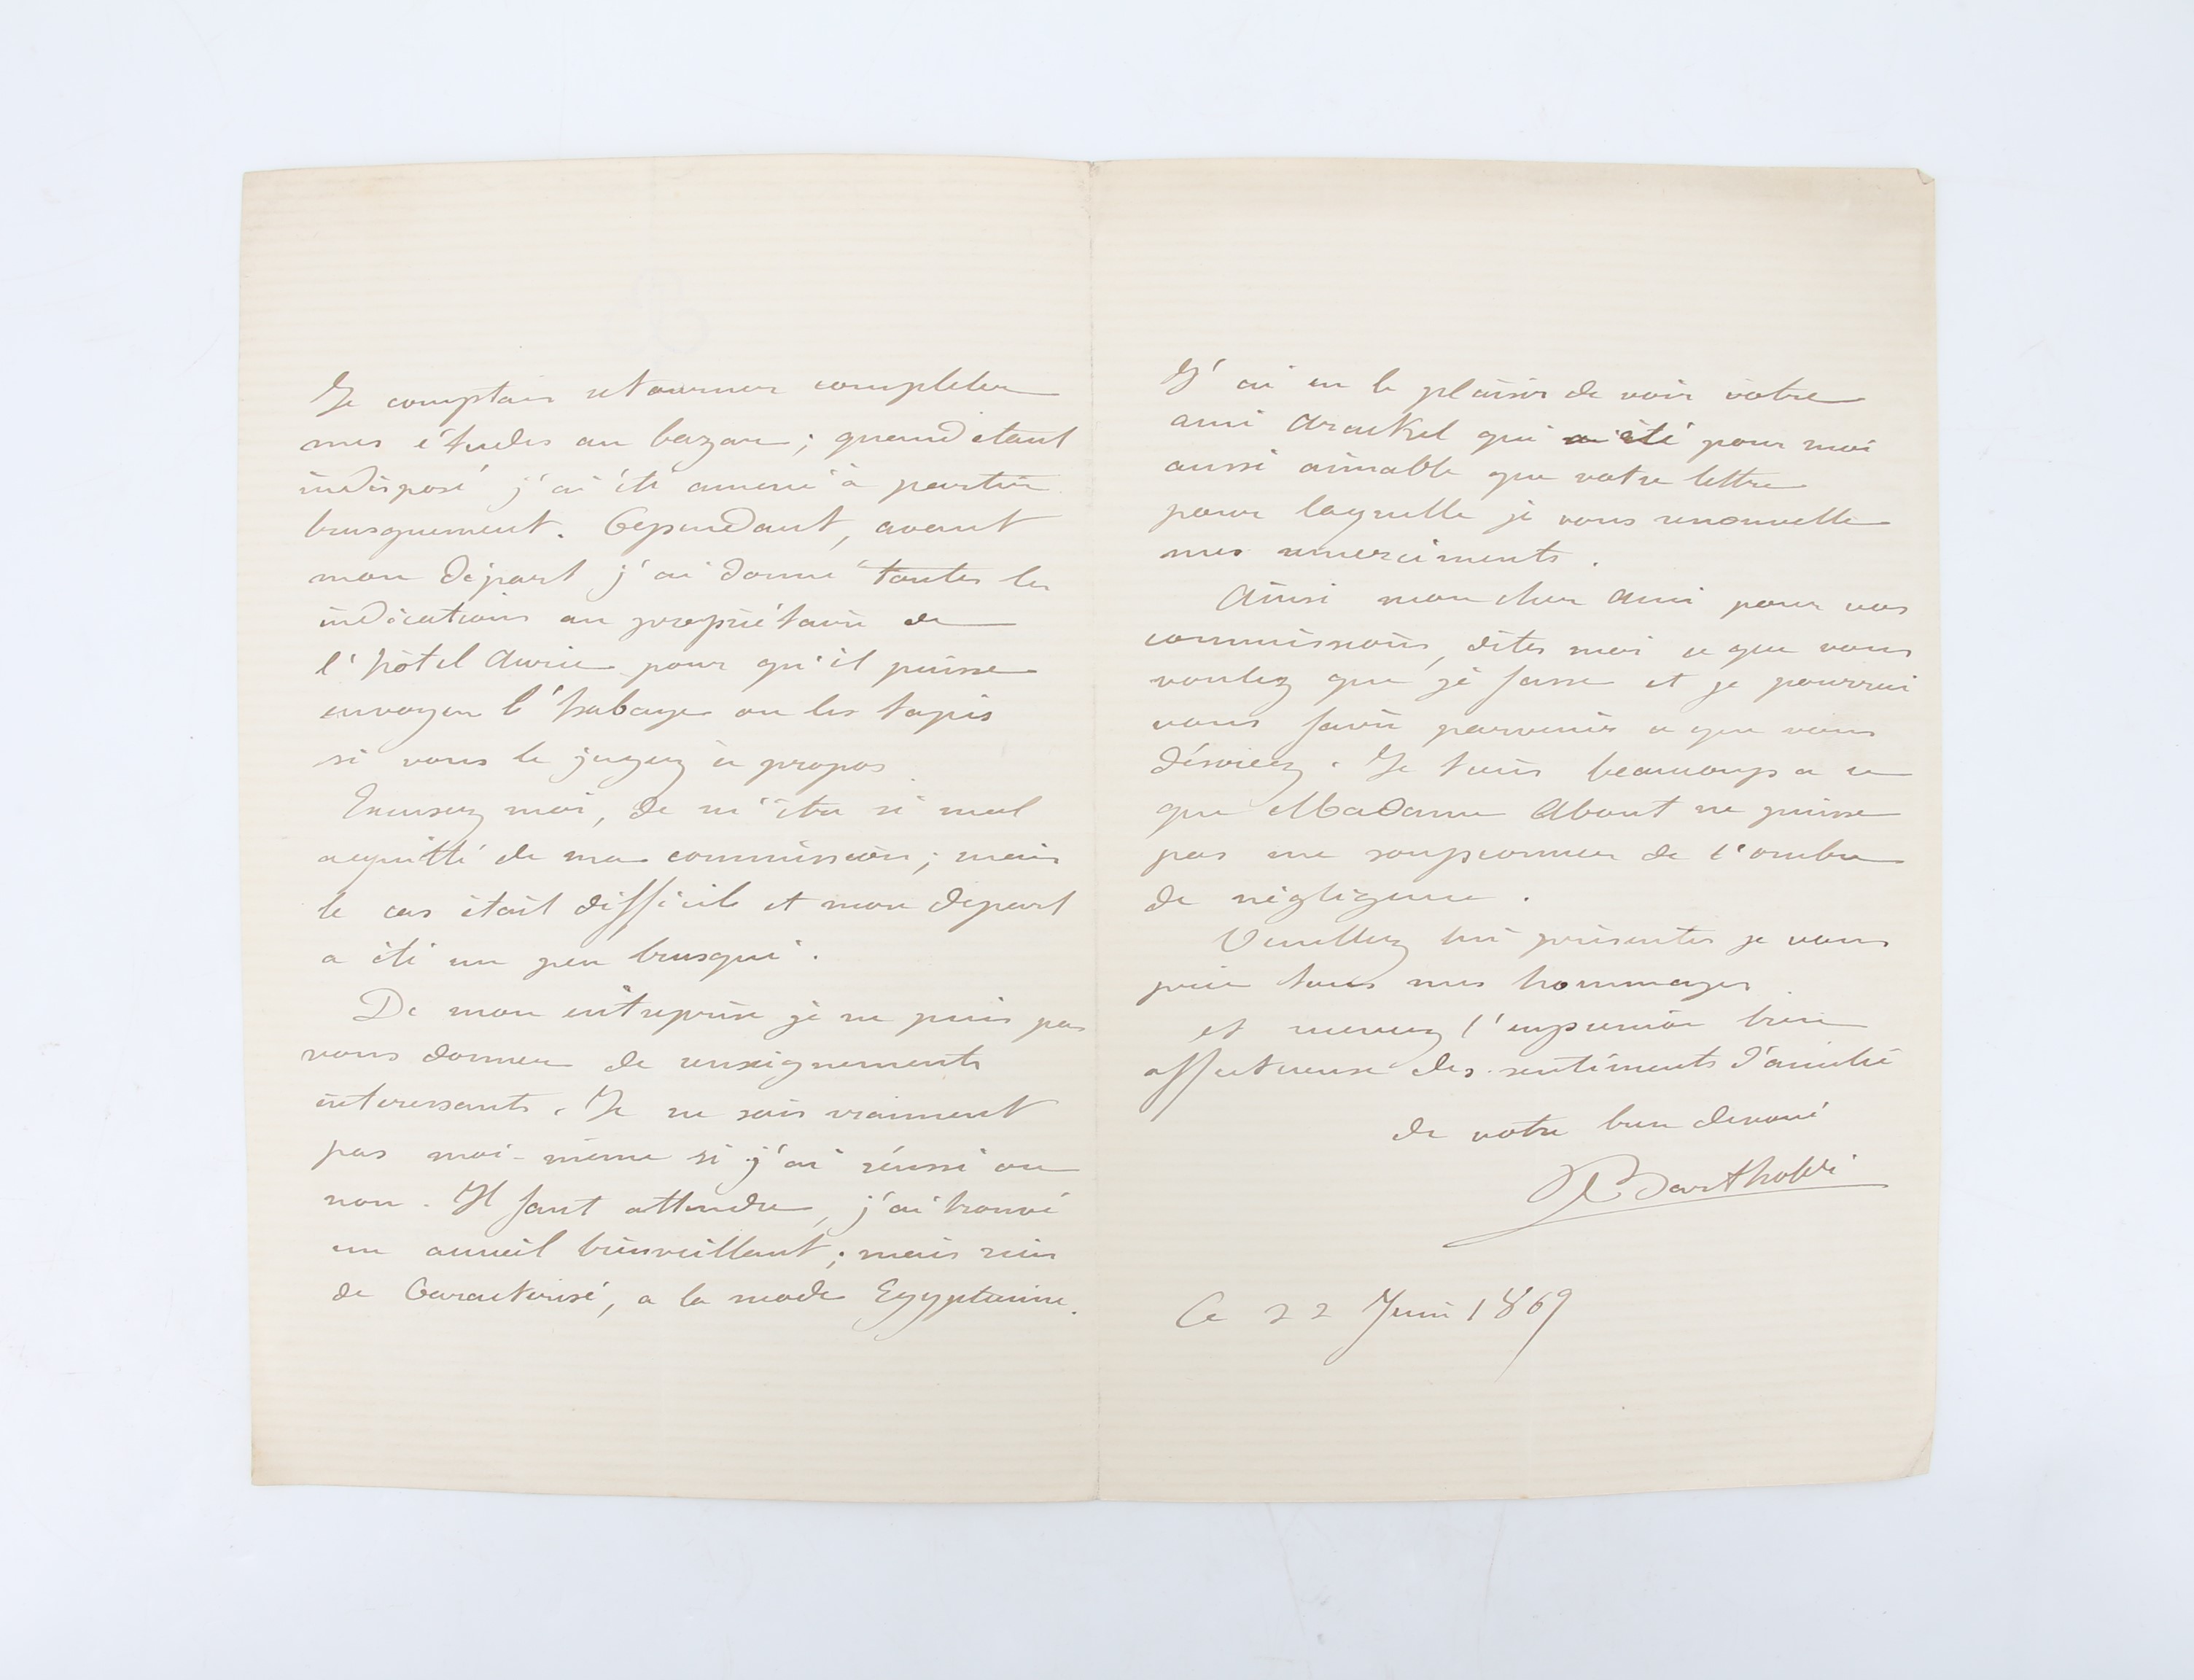 Je comptais retourner completer
mes études au bazar; quand étant
indisposé j'ai été amené à partir
brusquement. Cependant, avant
mon départ j'ai donné toutes les
indications au propriétaire de
l'hôtel pour qu'il puisse
envoyer l'habaye ou les tapis
si vous le jugez à propos.
Excusez moi, de m'être si mal
acquitté de ma commission; mais
le cas était difficile et mon départ
a été un peu brusqué.
De mon entreprise je ne puis pas
vous donner de renseignements
interessants. Je ne sais vraiment
pas moi-même si j'ai réussi ou
non. Il faut attendre, j'ai trouvé
un accueil bienveillant; mais rien
de Caracterisé, a la mode Egyptienne.
J'ai eu le plaisir de voir votre
ami Arakel qui a été pour moi
aussi aimable que votre lettre
pour laquelle je vous renouvelle
mes remerciments.
Ainsi mon cher Ami pour vos
commissions, dites moi ce que vous
voulez que je fasse et je pourrai
vous faire parvenir ce que vous
désirez. Je tiens beaucoup a ce
que Madame About ne puisse
pas me soupçonner de l'ombre
de négligence.
Veuillez lui présenter je vous
prie tous mes hommages
et recevez l'expression bien
affectueuse des sentiments d'amitié
de votre bien devoué
Bartholdi
Ce 22 Juin 1869